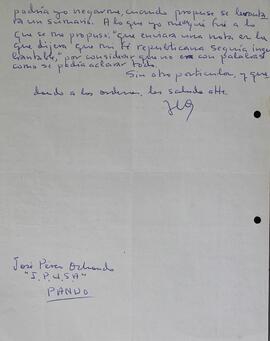 podría yo negarme, cuando propuse se levanta-
ra un sumario. A lo que yo me negué fue a lo
que se me propuso: "que enviara una nota en la
que dijera que mi fé republicana seguía inque-
brantable," por considerar que no era con palabras
como se podía aclarar todo.
Sin otro particular, y que
dando a las ordenes, les saluda atte
José Pérez
"J.P.U.S.A"
PANDO